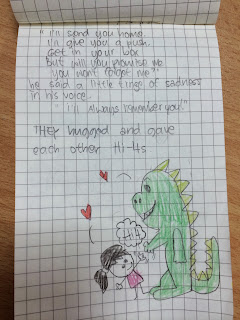 "I'll send you home,
I'll give you a push.
Get in your box
But will you promise me
you wont forget me?"
he said a little tinge of sadness
in his voice.
"I'll always remember you!"
THEY hugged and gave
each other Hi-4s